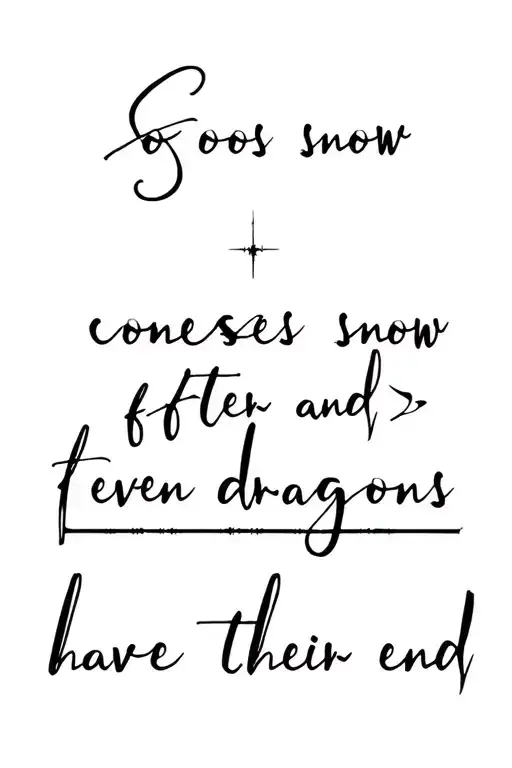 So oos snow
coneses snow
ffter and
even dragons
have their end